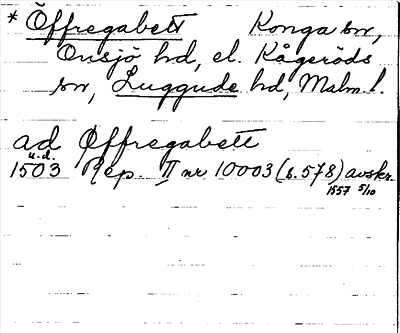 * Öffregabett Konga sn,
Onsjö hd, el. Kågeröds
sn, Luggude hd, Malm. l.
ad Øffregabett
u.d.
1503 Rep. II nr 10003 (s. 578) avskr.
1557 5/10